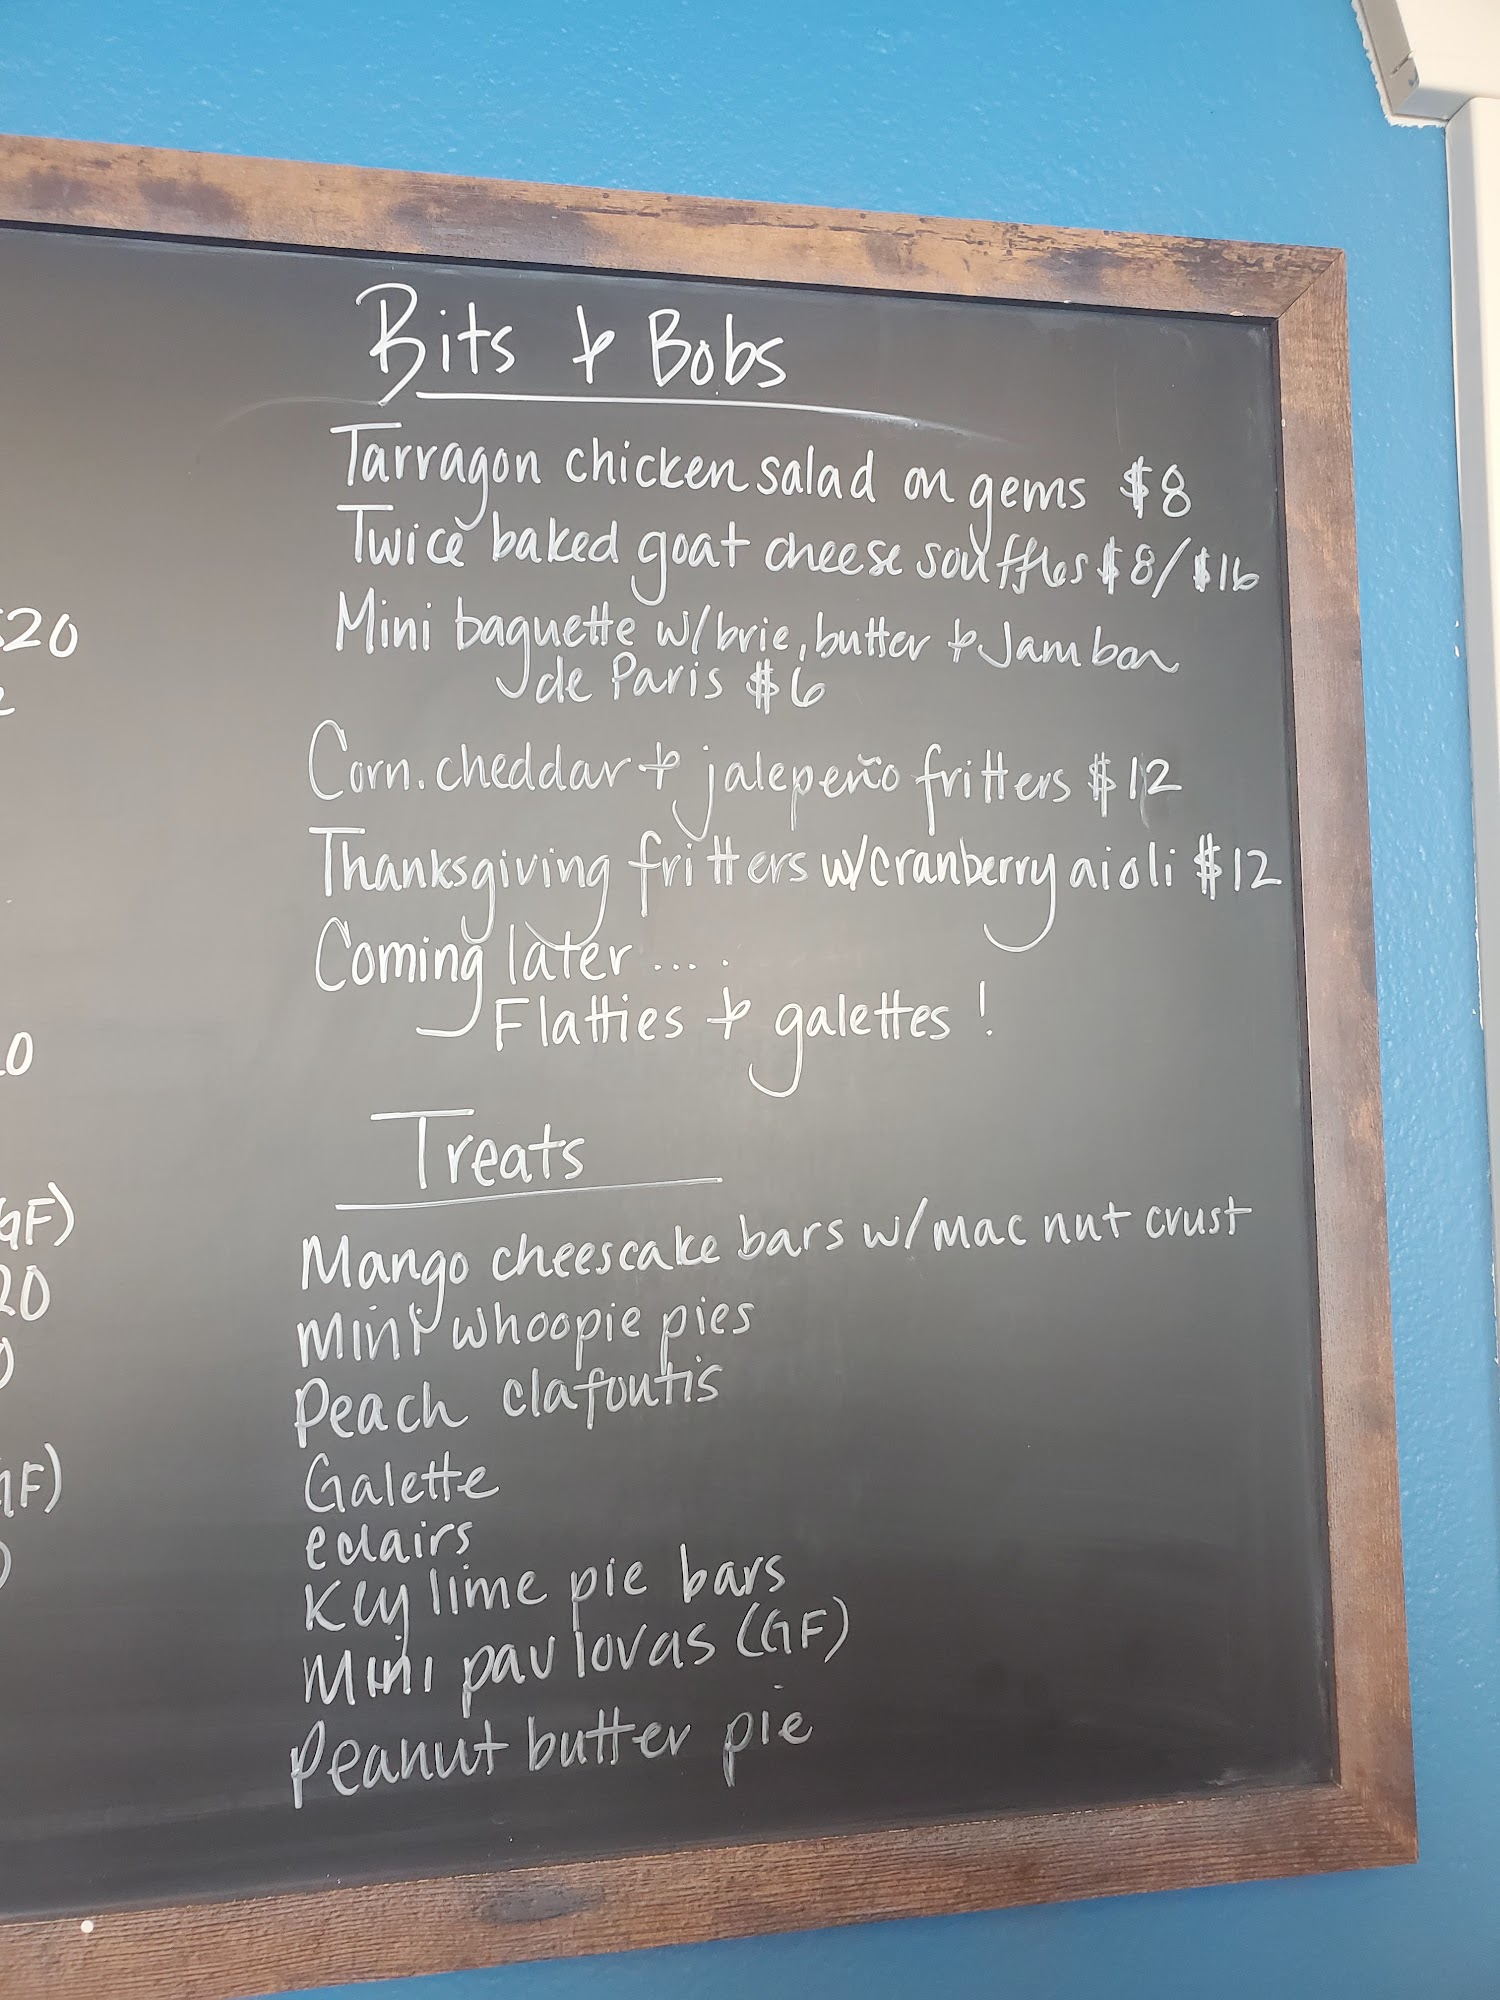 Bits & Bobs
Tarragon chicken salad on gems $8
Twice baked goat cheese souffles $8/$16
Mini baguette w/brie, butter & Jambon
de Paris $6
Corn.cheddar & jalepeño fritters $12
Thanksgiving fritters w/cranberry aioli $12
Coming later ....
Flatties & galettes!
Treats
Mango cheesecake bars w/mac nut crust
Mini whoopie pies
Peach clafoutis
Galette
eclairs
Key lime pie bars
Mini pavlovas (GF)
Peanut butter pie
$20
GF)
20
GF)